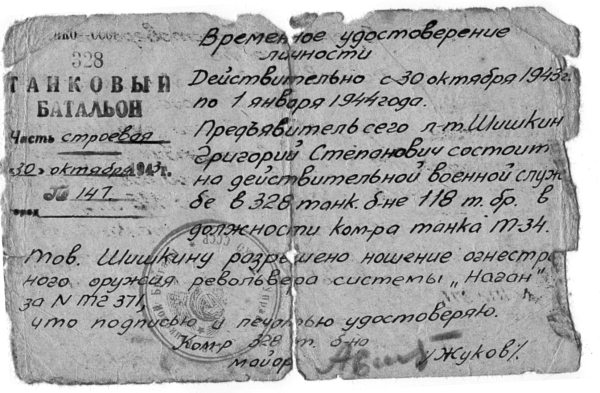 НКО СССР
328
ТАНКОВЫЙ
БАТАЛЬОН
Часть строевая
"30" октября 1943 г.
№ 147.
Временное удостоверение
личности
Действительно с 30 октября 1943 г.
по 1 января 1944 года.
Предъявитель сего л-т Шишкин
Григорий Степанович состоит
на действительной военной служ
бе в 328 танк. б-не 118 т. бр. в
должности ком-ра танка Т-34.
Тов. Шишкину разрешено ношение огнестре
ного оружия револьвера системы „Наган"
за N ТГ 371,
что подписью и печатью удостоверяю.
Ком-р 328 т. б-на
майор /Жуков/.